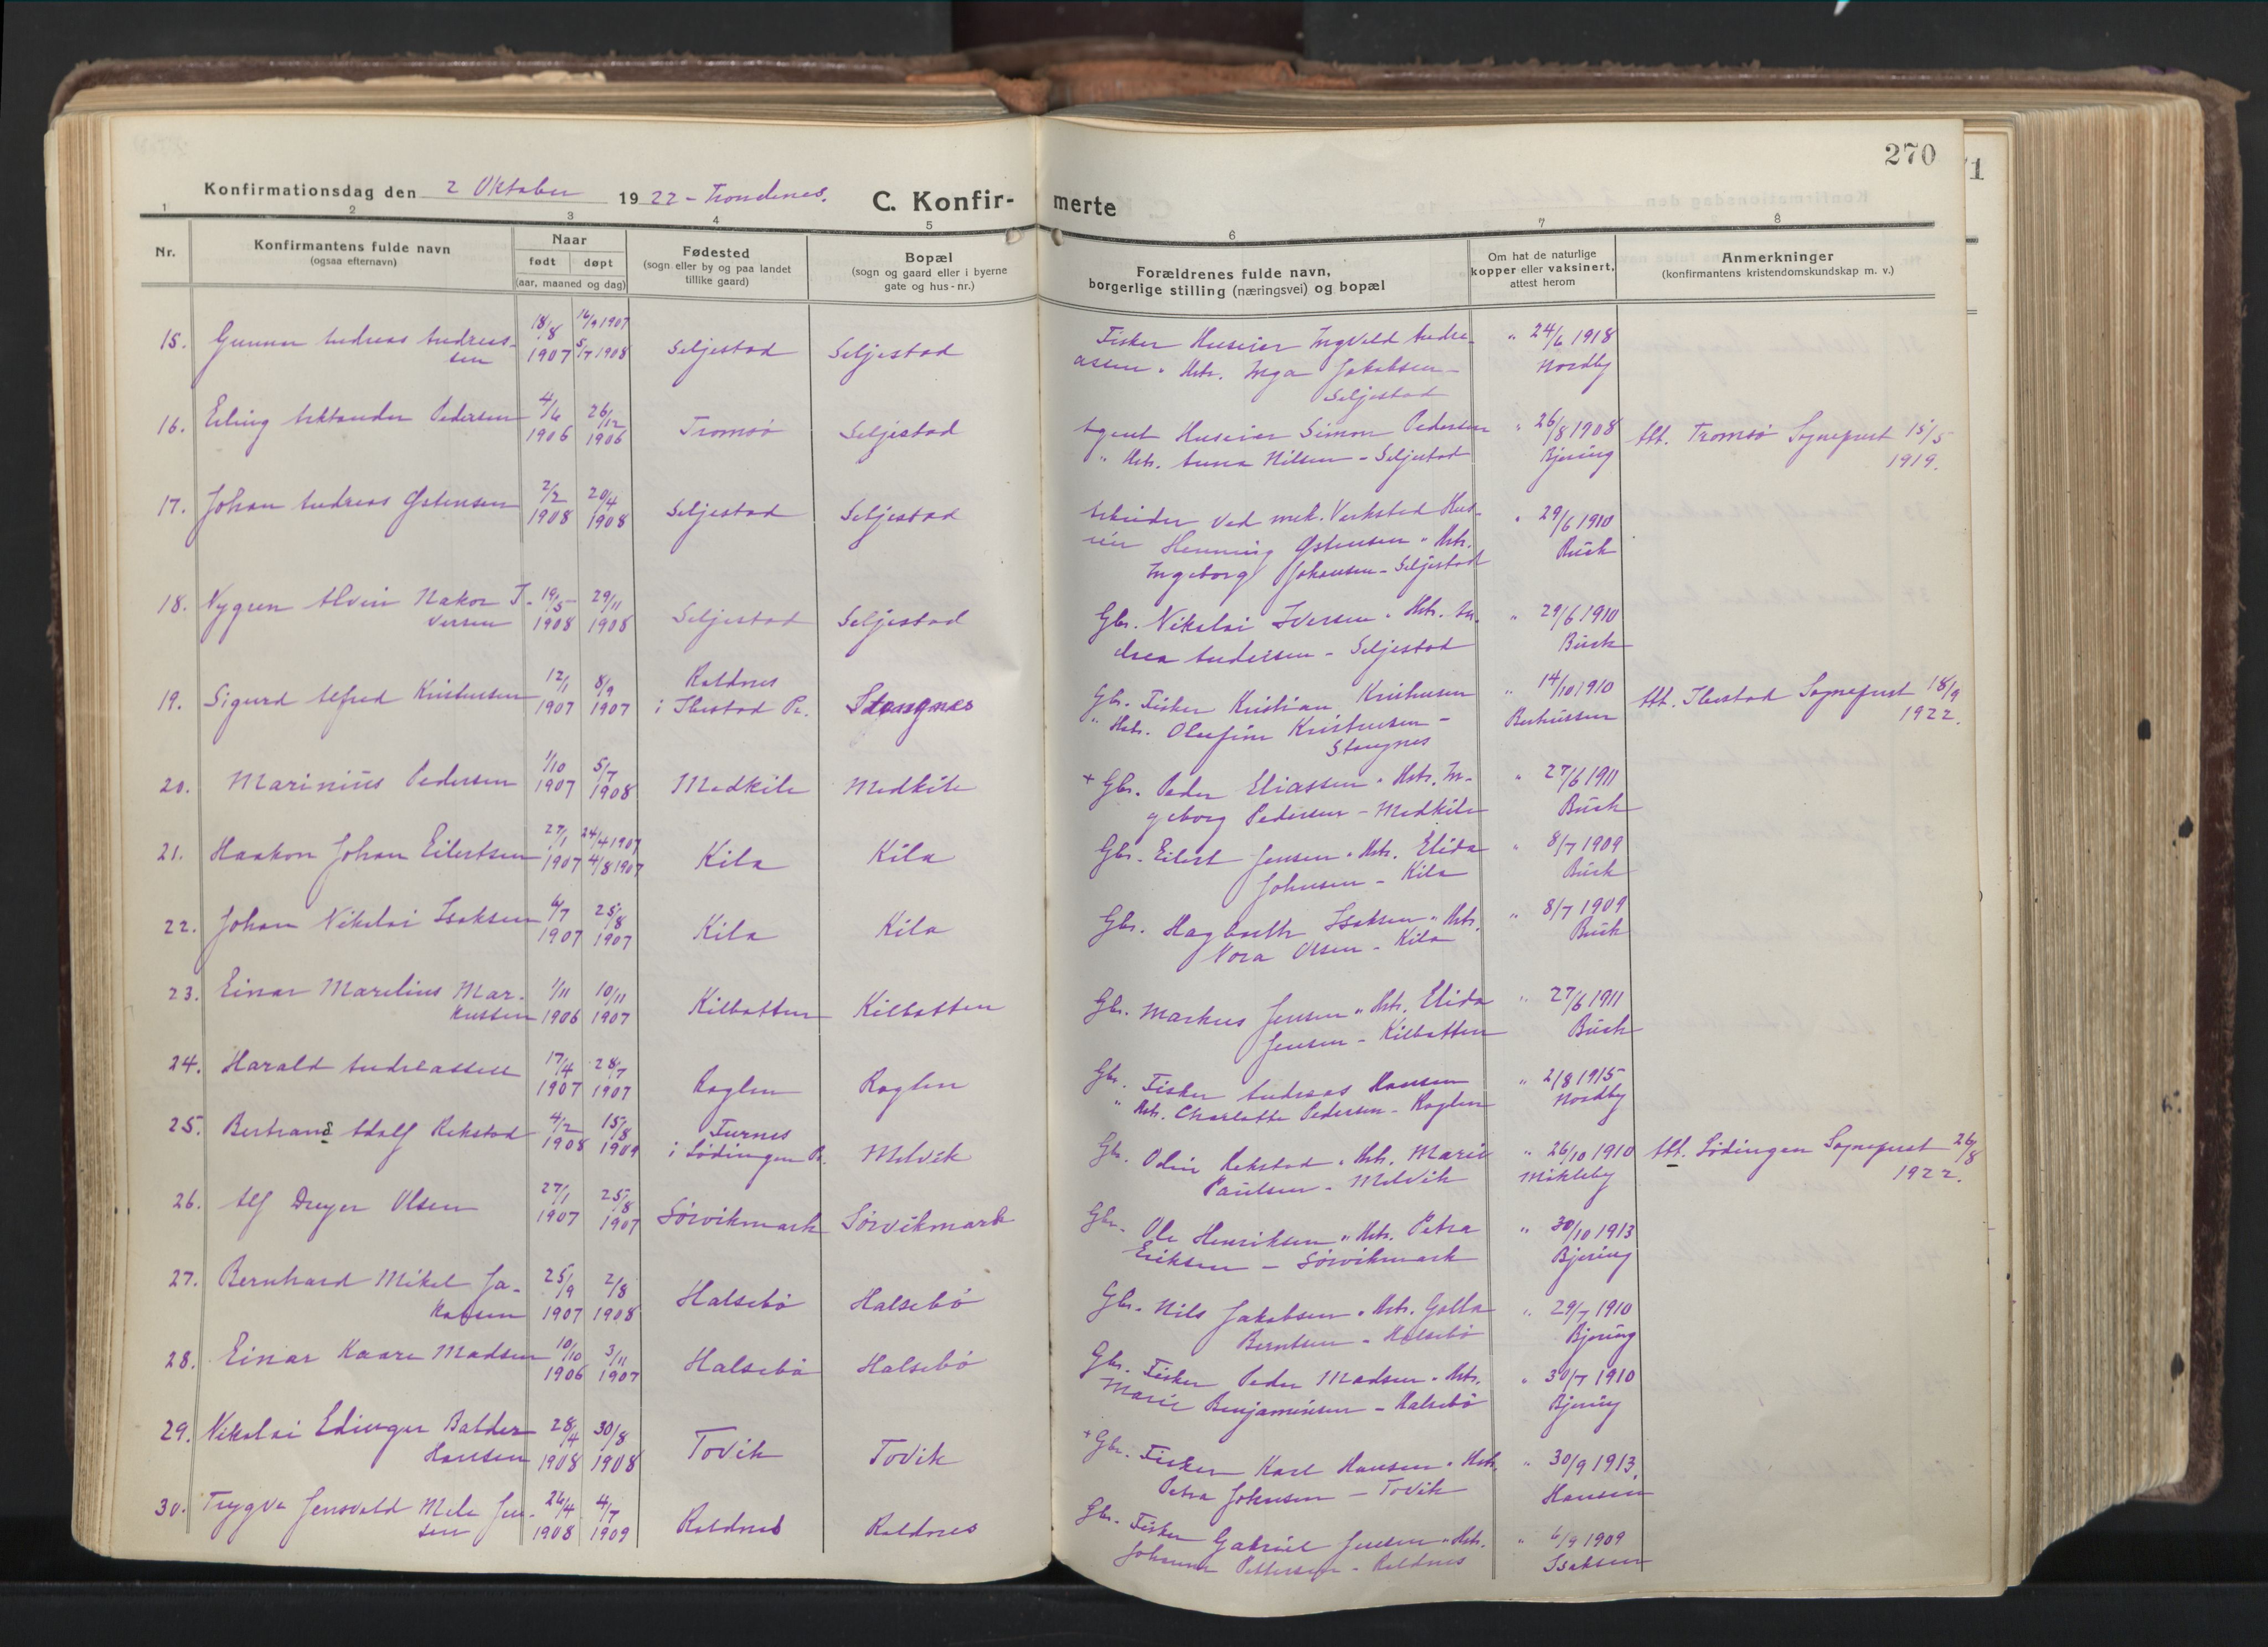 270
Konfirmationsdag den 2 Oktober 1922 - Trondenes.
C. Konfir- merte
1 2 3 4 5 6 7 8
Nr.
Konfirmantens fulde navn
(ogsaa efternavn)
Naar
født døpt
(aar, maaned og dag)
Fødested
(sogn eller by og paa landet
tillike gaard)
Bopæl
(sogn og gaard eller i byerne
gate og hus-nr.)
Forældrenes fulde navn,
borgerlige stilling (næringsvei) og bopæl
Om hat de naturlige
kopper eller vaksinert,
attest herom
Anmerkninger
(konfirmantens kristendomskundskap m. v.)
15. Gunnar Andreas Andreas- 18/8 16/9 1907 Seljestad Seljestad Fisker Huseier Ingvald Andre- " 24/6 1918
sen 1907 5/7 1908 assen " Hstr. Inga Jakobsen - Nordby
Seljestad
16. Erling Arktander Pedersen 4/6 26/12 Tromsø Seljestad Agent Huseier Simon Pedersen " 26/8 1908 Att. Tromsø Sogneprest 15/5
1906 1906 " Hstr. Anna Nilsen - Seljestad Bjering 1919.
17. Johan Andreas Østensen 2/2 20/4 Seljestad Seljestad Arbeider ved mek. Verksted Hus- " 29/6 1910
1908 1908 eier Henning Østensen " Hstr. Buch
Ingeborg Johansen - Seljestad
18. Nygren Alvin Hakon I- 19/5 29/11 Seljestad Seljestad Gbr. Nikolai Iversen " Hstr. An- " 29/6 1910
versen 1908 1908 drea Andersen - Seljestad Buch
19. Sigurd Alfred Kristensen 12/1 8/9 Roldnes Stangnes Gbr. Fisker Kristian Kristensen " 14/10 1910 Att. Ibestad Sogneprest 18/9
1907 1907 i Ibestad Pr. " Hstr. Olufine Kristensen - Berteussen 1922.
Stangnes
20. Marinius Pedersen 1/10 5/7 Medkile Medkile + Gbr. Peder Eliassen " Hstr. In- " 27/6 1911
1907 1908 geborg Pedersen - Medkile Buch
21. Haakon Johan Eilertsen 27/1 24/4 1907 Kila Kila Gbr. Eilert Jensen " Hstr. Elida " 8/7 1909
1907 4/8 1907 Johnsen - Kila Buch
22. Johan Nikolai Isaksen 6/7 25/8 Kila Kila Gbr. Hagbarth Isaksen " Hstr. " 8/7 1909
1907 1907 Nora Olsen - Kila Buch
23. Einar Marelius Mar- 1/11 10/11 Kilbotten Kilbotten Gbr. Markus Jensen " Hstr. Elida " 27/6 1911
kussen 1906 1907 Jensen - Kilbotten Buch
24. Harald Andreassen 17/4 28/7 Roglen Roglen Gbr. Fisker Andreas Hansen " 2/8 1915
1907 1907 " Hstr. Charlotte Pedersen - Roglen Nordby
25. Bertrand Adolf Rekstad 4/2 15/8 Furnes Melvik Gbr. Odin Rekstad " Hstr. Marie " 26/10 1910 Att. Lødingen Sogneprest 26/8
1908 1909 i Lødingen Pr. Paulsen - Melvik Mikleby 1922.
26. Alf Dreyer Olsen 27/1 25/8 Sørvikmark Sørvikmark Gbr. Ole Henriksen " Hstr. Petra " 30/10 1913
1907 1907 Eriksen - Sørvikmark Bjering
27. Bernhard Mikal Ja- 25/9 2/8 Halsebø Halsebø Gbr. Nils Jakobsen " Hstr. Golla " 29/7 1910
kobsen 1907 1908 Berntsen - Halsebø Bjering
28. Einar Kaare Madsen 10/10 3/11 Halsebø Halsebø Gbr. Fisker Peder Madsen " Hstr. " 30/7 1910
1906 1907 Marie Benjaminsen - Halsebø Bjering
29. Nikolai Edinger Balder 28/4 30/8 Tovik Tovik + Gbr. Fisker Karl Hansen " Hstr. " 30/9 1913.
Hansen 1908 1908 Petra Johnsen - Tovik Hansen
30. Trygve Jensvold Mele Jen- 26/4 4/7 Roldnes Roldnes Gbr. Fisker Gabriel Jensen " Hstr. " 6/9 1909
sen 1908 1909 Johanna Pettersen - Roldnes Isaksen